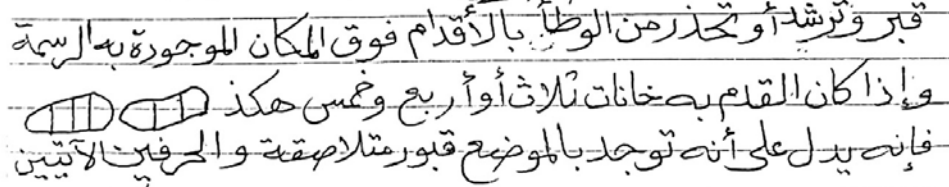 قبر وترشد أو تحذر من الوطأ بالأقدام فوق المكان الموجودة به الرسمة
وإذا كان القدم به خانات ثلاث أو أربع وخمس هكذ
فإنه يدل على أنه توجد بالموضع قبور متلاصقة والحرفين الآتيين